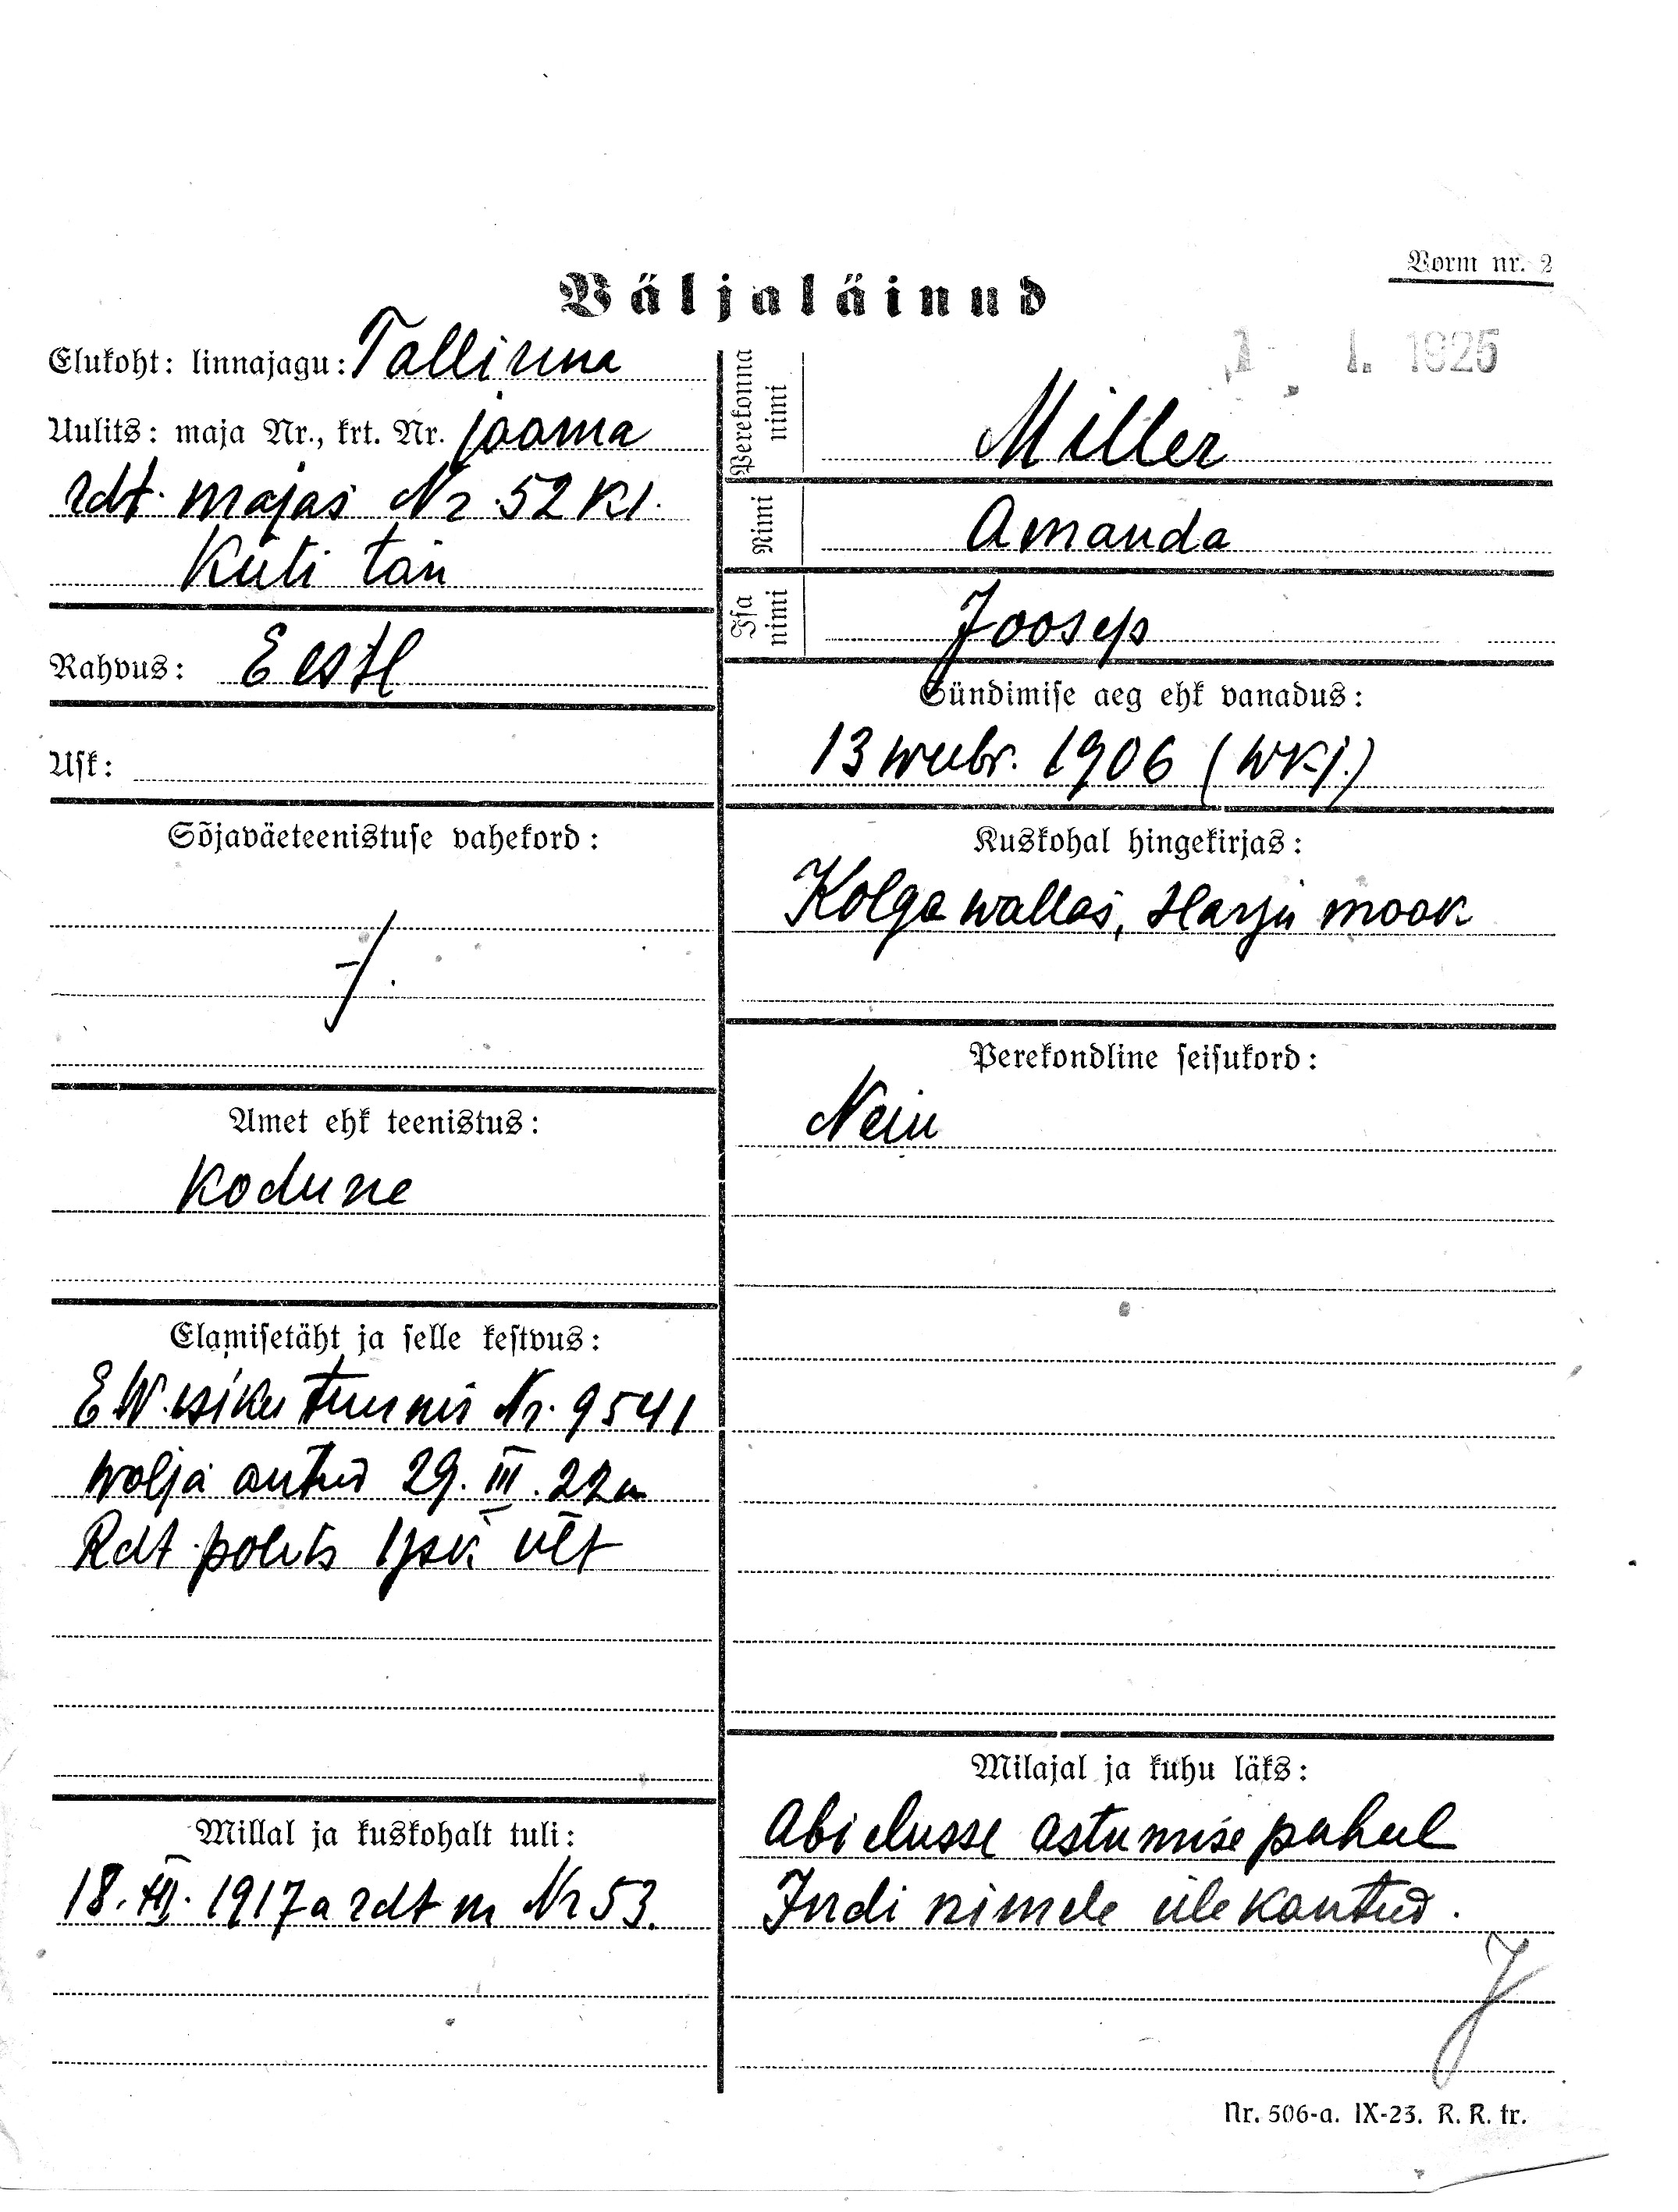 Vorm nr. 2
Väljaläinud
1. 1925
Elukoht: linnajagu: Tallinna
Uulits: maja Nr., krt. Nr. jaama
rdt. majas Nr. 52 kr.
Küti tän
Rahvus: Eestl
Usk:
Sõjaväeteenistuse vahekord:
Amet ehk teenistus:
kodune
Elamisetäht ja selle kestvus:
E.W. isiku tunnis Nr. 9541
wälja antud 29. III. 22 a
Rdt. polits 1 jsk. ült
Millal ja kuskohalt tuli:
18. XII. 1917 a rdt m Nr 53.
Perekonna nimi
Miller
Nimi
Amanda
Isa nimi
Joosep
Sündimise aeg ehk vanadus:
13 weebr. 1906 (wkj.)
Kuskohal hingekirjas:
Kolga wallas, Harju maak
Perekondline seisukord:
Neiu
Milajal ja kuhu läks:
Abielusse astumise puhul
Indi nimele üle kantud.
Nr. 506-a. IX-23. R. R. tr.